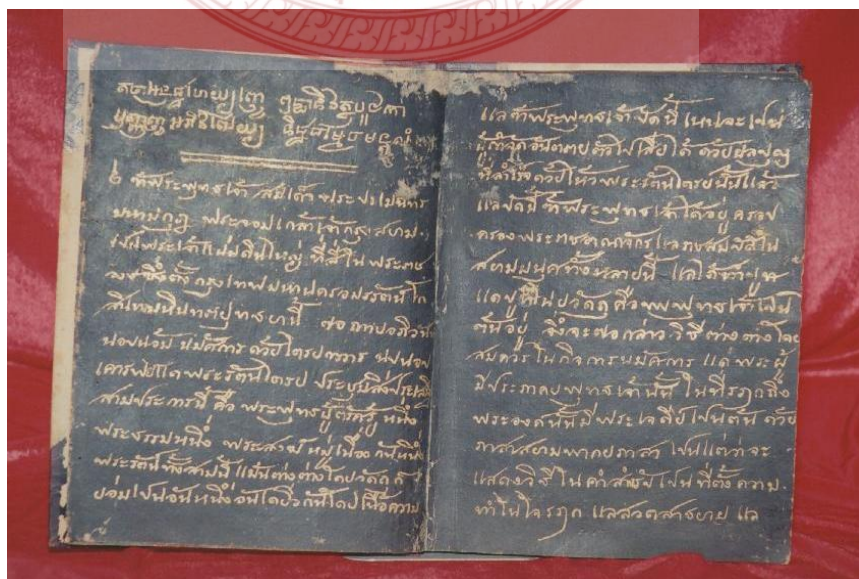 ๒ ข้าพระพุทธเจ้า สมเด็จพระปรเมนทร
มหามกุฎ พระจอมเกล้าเจ้ากรุงสยาม
เปนพระเจ้าแผ่นดินใหญ่ ที่สี่ในพระราช
วงษซึ่งตั้งกรุงเทพมหานครอมรรัตนโก
สินทรมหินทรายุทธยานี้ ขอถวายอภิวันท
นอบน้อม นมัศการ ด้วยไตรยทวาร นบนอบ
เคารพแด่พระรัตนไตรย ประชุมสิ่ง
สามประการนี้ คือ พระพุทธผู้ตรัสรู้ หนึ่ง
พระธรรมหนึ่ง พระสงฆ หมู่เนื่อง กันหนึ่ง
พระรัตนทั้งสามนี้ แม้นต่างต่างโดยวัตถุ ก็
ย่อมเปนอันหนึ่งอันเดียวกันโดยเนื้อความ
แลข้าพระพุทธเจ้าบัดนี้ เหนจะเปน
ผู้กำจัดอันตรายตัวไปเสียได้ ด้วยผลบุญ
ที่สำเร็จด้วยไหว้พระรัตนไตรยนั้นแล้ว
แลบัดนี้ ข้าพระพุทธเจ้าได้อยู่ครอบ
ครองพระราชอาณาจักร แลราชสมบัติใน
สยาม ทั้งหลายนี้ แลได้
แด่ วัตถุ คือพระพุทธเจ้าเปน
ต้นอยู่ จึ่งจะขอกล่าว วิธีต่างต่างโดย
สมควร ในกิจการนมัศการ แด่พระผู้
มีพระภาคยพุทธเจ้านั้น ในที่รฦกถึง
พระองค์นั้นมีพระเจดีย์เปนต้น ด้วย
ภาษาสยามพากยภาสา เปนแต่ว่าจะ
แสดงวิธี ในคำสำหรับ เปน ที่ตั้งความ
ทำในใจรฦก แลสวดสาธยาย แล